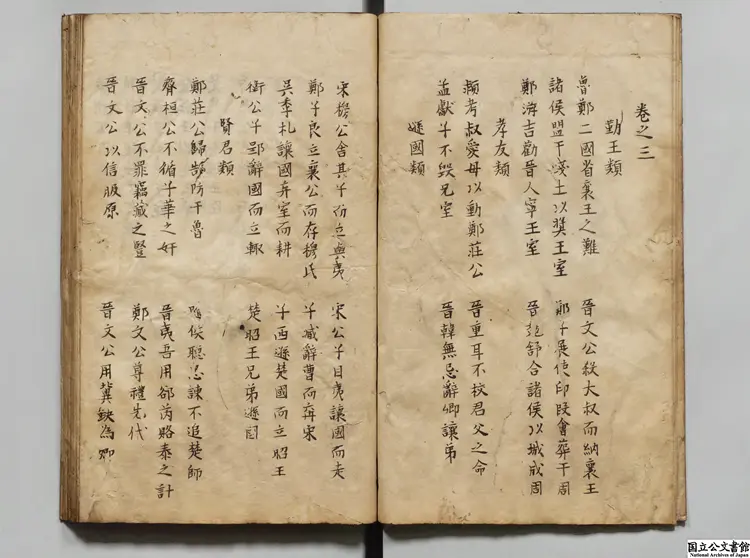 卷之三
勤王類
魯鄭二國省襄王之難 晉文公殺大叔而納襄王
諸侯盟于踐土以獎王室 鄭子展使印段會葬于周
鄭游吉勸晉人寧王室 晉魏舒合諸侯以城成周
孝友類
潁考叔愛母以動鄭莊公 晉重耳不校君父之命
孟獻子不毀兄室 晉韓無忌辭卿讓弟
遜國類
宋穆公舍其子而立與夷 宋公子目夷讓國而走
鄭子良立襄公而存穆氏 子臧辭曹而奔宋
吳季札讓國弃室而耕 子西遜楚國而立昭王
衛公子郢辭國而立輒 楚昭王兄弟遜國
賢君類
鄭莊公歸郜防于魯 隨侯聽忠諫不追楚師
齊桓公不循子華之奸 晉夷吾用郤芮賂秦之計
晉文公不罪竊藏之豎 鄭文公尊禮先代
晉文公以信服原 晉文公用冀缺為卿
国立公文書館
National Archives of Japan